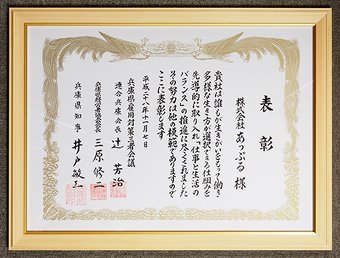 表彰
株式会社あっぷる 様
貴社は誰もが生きがいをもって働き
多様な生き方が選択できる仕組みを
先導的に取り入れ「仕事と生活の
バランス」の推進に尽くされました
その努力は他の模範でありますので
ここに表彰します
平成二十八年十一月七日
兵庫県雇用対策三者会議
連合兵庫会長 辻 芳治
兵庫県経営者協会会長 三原 修二
兵庫県知事 井戸 敏三